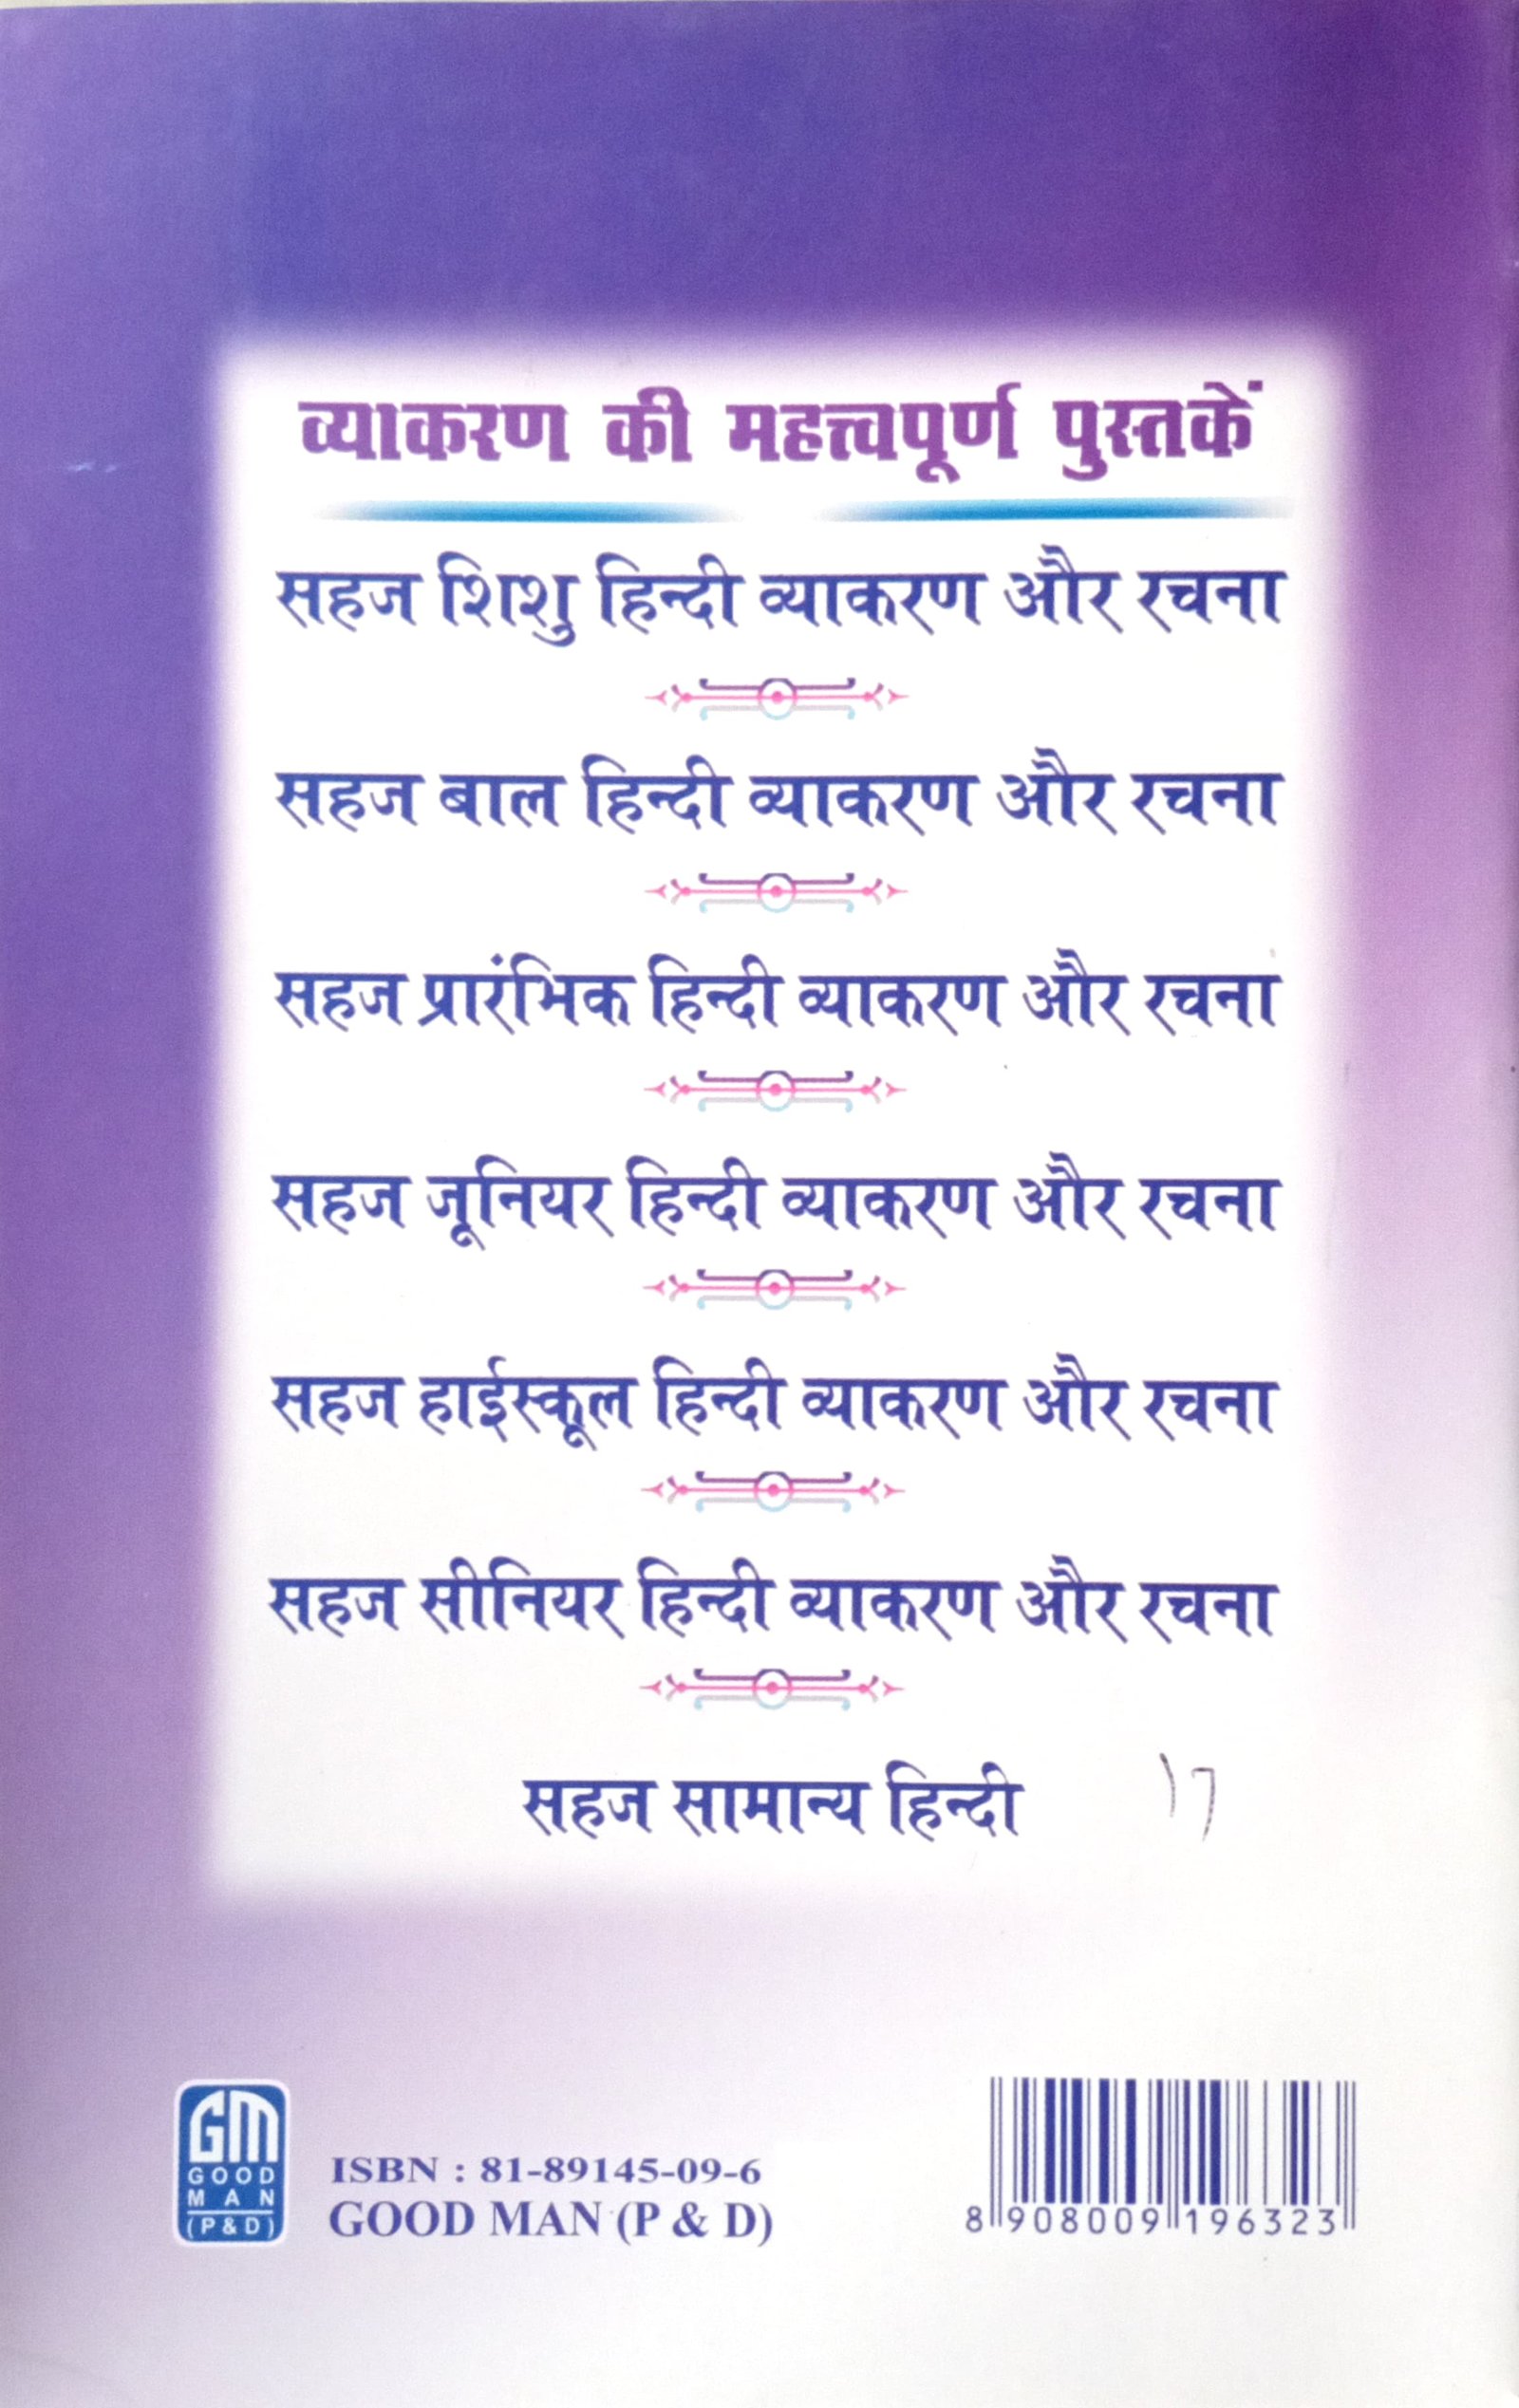 व्याकरण की महत्त्वपूर्ण पुस्तकें
सहज शिशु हिन्दी व्याकरण और रचना
सहज बाल हिन्दी व्याकरण और रचना
सहज प्रारंभिक हिन्दी व्याकरण और रचना
सहज जूनियर हिन्दी व्याकरण और रचना
सहज हाईस्कूल हिन्दी व्याकरण और रचना
सहज सीनियर हिन्दी व्याकरण और रचना
सहज सामान्य हिन्दी
GM
GOOD
MAN
(P&D)
ISBN : 81-89145-09-6
GOOD MAN (P & D)
8 908009 196323